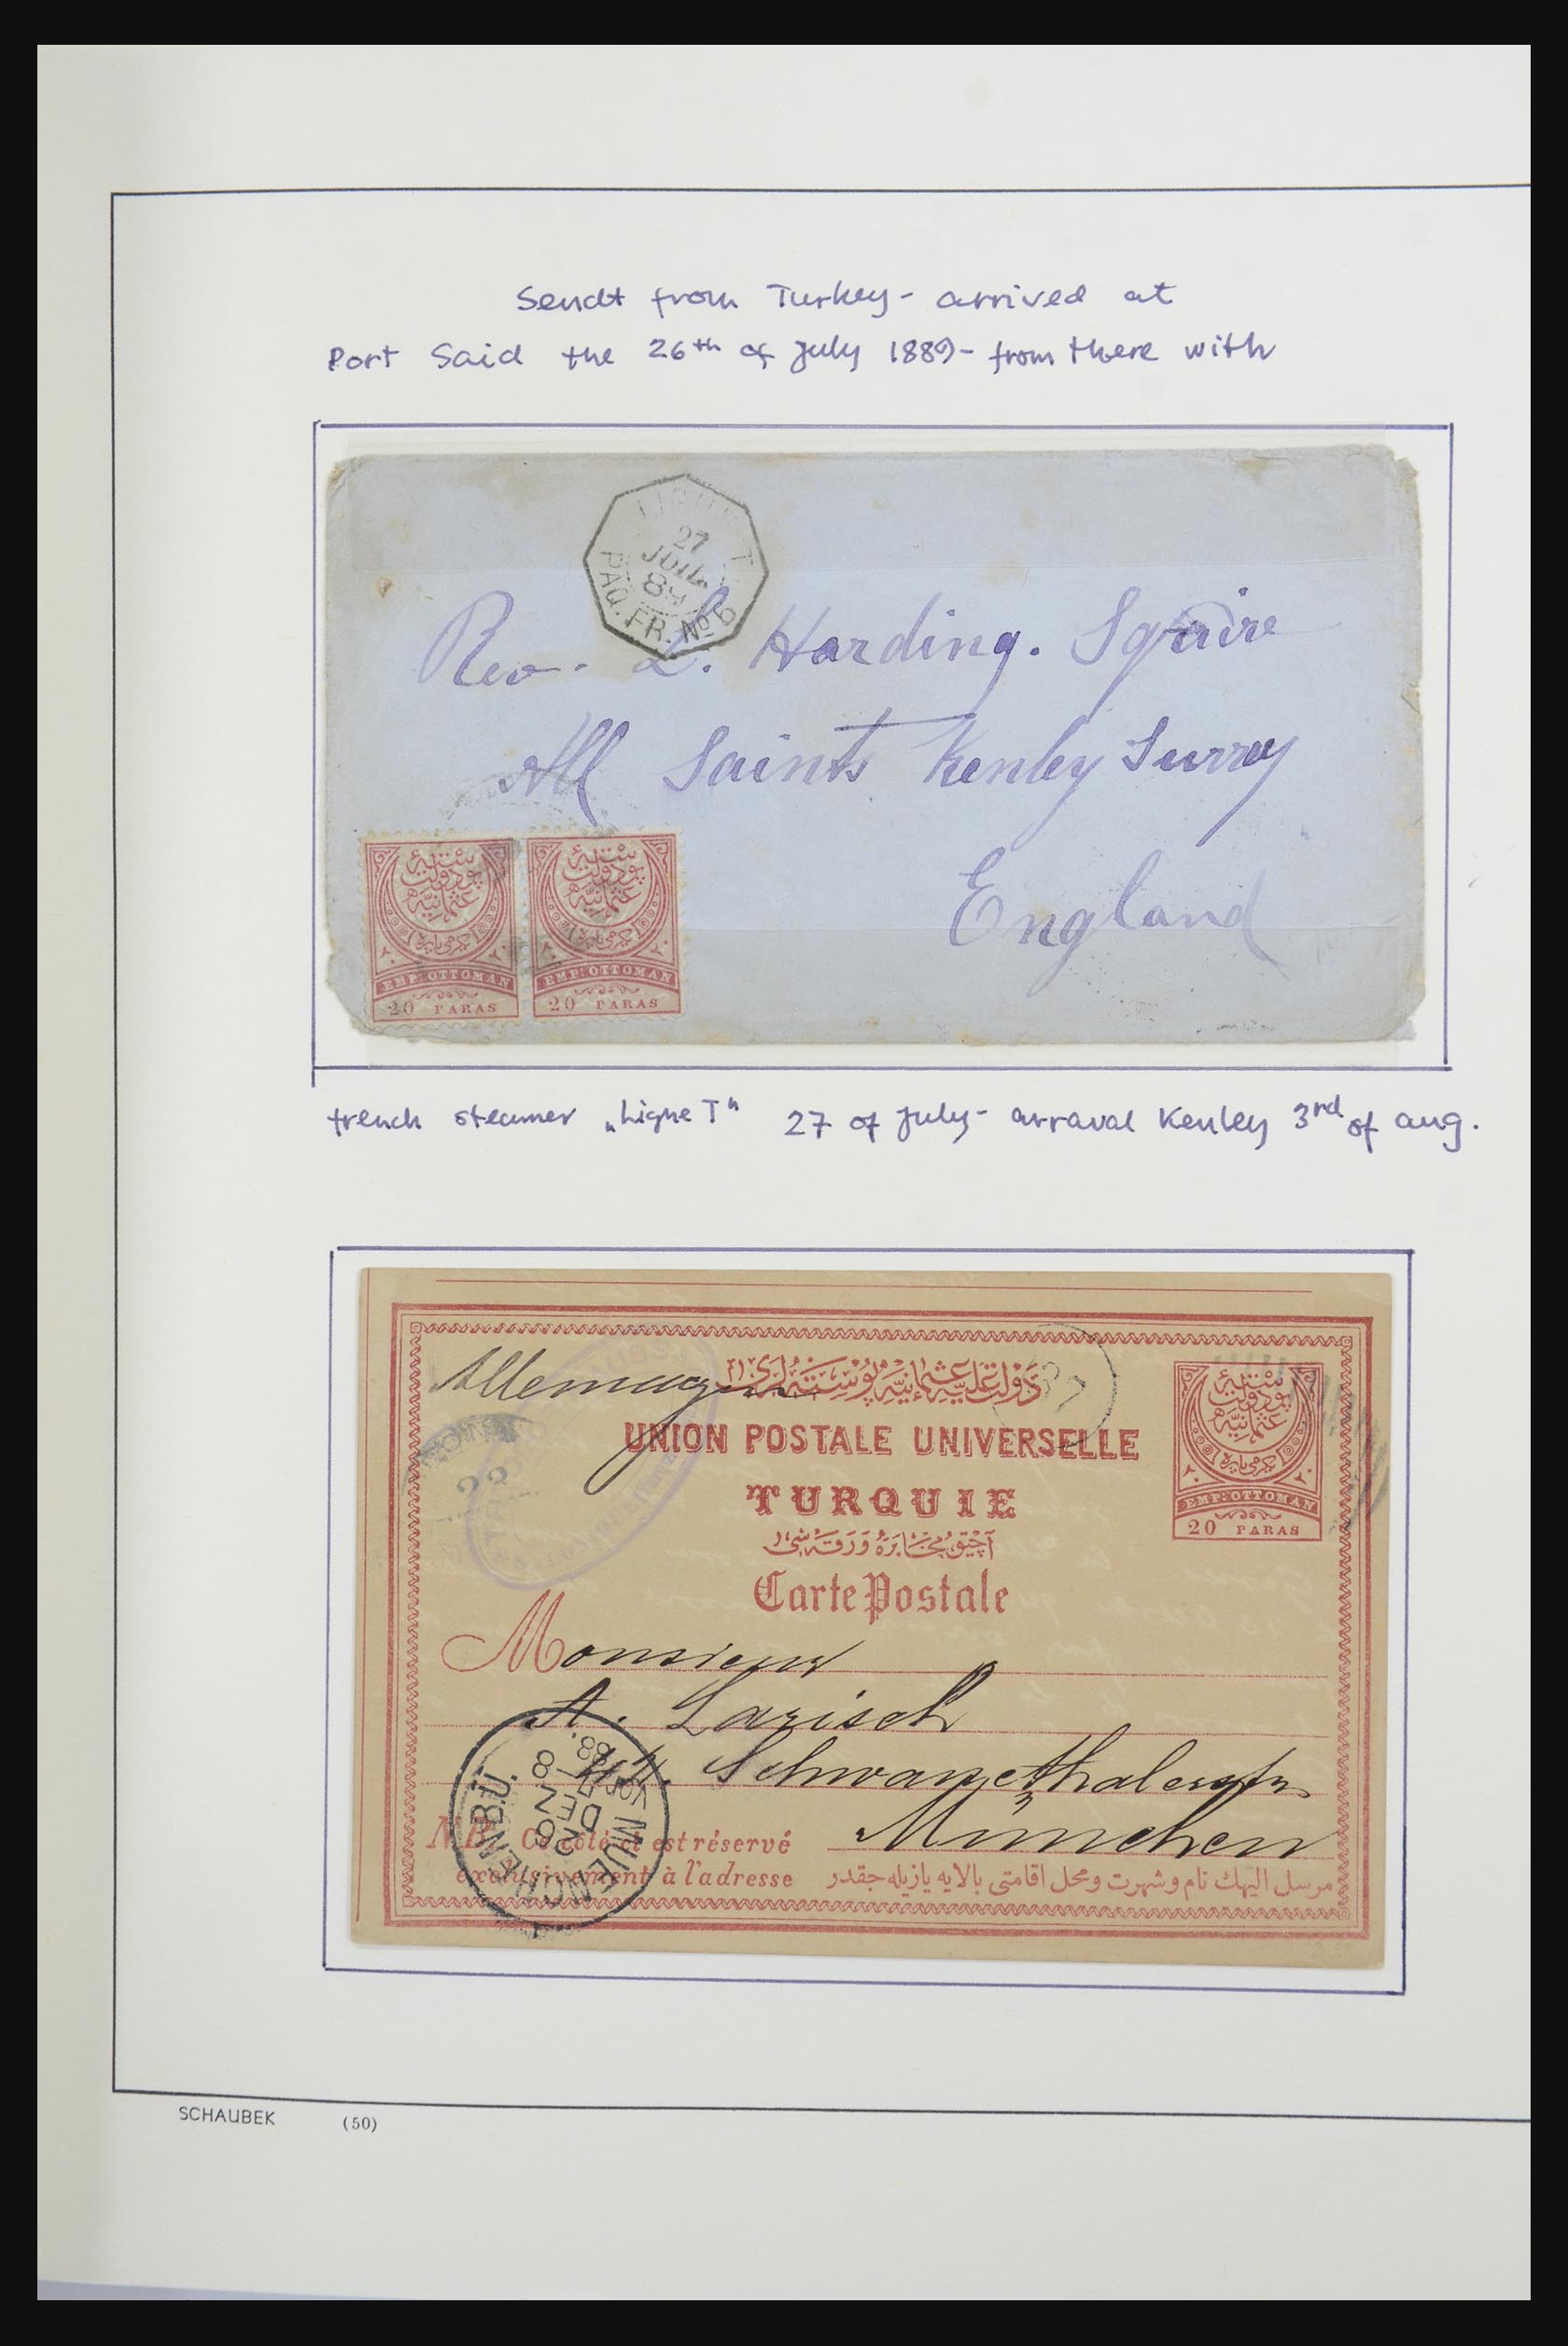 Sendt from Turkey - arrived at
Port Said the 26th of July 1889 - from there with
27
JUIL.
89
PAQ. FR. No 6
Rev. L. Harding. Sqaire
All Saints Kenley Surrey
England
EMP: OTTOMAN EMP: OTTOMAN
20 PARAS 20 PARAS
trench steamer „Ligne T" 27 of July - arraval Kenley 3rd of aug.
Allemagne
دولت علیه عثمانیه پوسته لری
UNION POSTALE UNIVERSELLE
TURQUIE
آچیق مخابره ورقه سی
Carte Postale
EMP: OTTOMAN
20 PARAS
22
Monsieur
A. Lazisch
Schwanethalerstr
München
MUENCHEN B.U.
26
DEZ
88.
NB. Ce côté est réservé
exclusivement à l'adresse
مرسل الیهك نام و شهرت و محل اقامتی بالایه یازیله جقدر
SCHAUBEK (50)